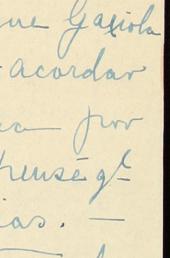 ne Gaxiola
acordar
ea por
pensé q̱l
ias. —